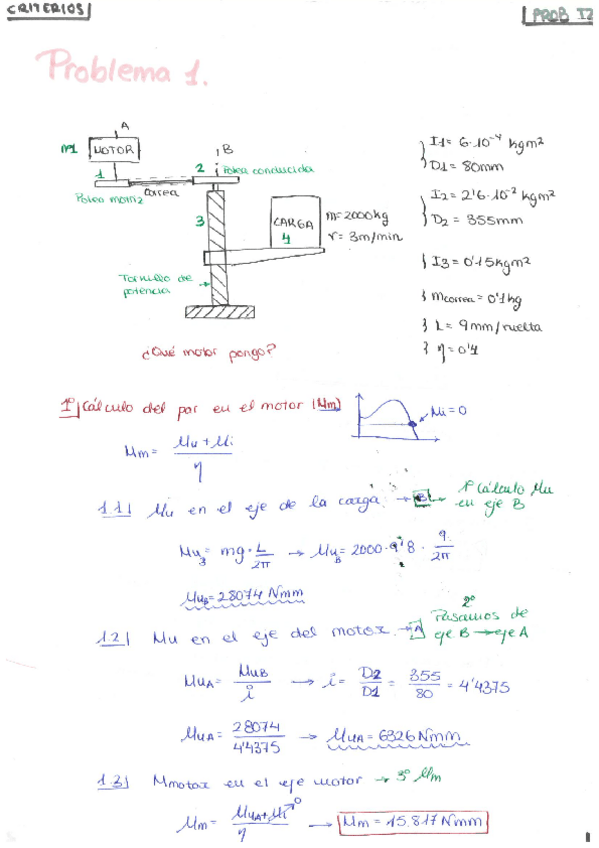 CRITERIOS
PROB I2
Problema 1.
A
M1
MOTOR
B
1
2
Polea conducida
Polea motriz
Correa
3
CARGA
4
m=2000kg
v= 3m/min
Tornillo de
potencia
I1= 6·10⁻⁴ kgm²
D1= 80mm
I2= 2'6·10⁻² kgm²
D2= 355mm
I3= 0'15kgm²
mcorrea= 0'1kg
L= 9mm/vuelta
η= 0'4
¿Qué motor pongo?
1º Cálculo del par en el motor (Mm)
Mi=0
Mm= (Mu + Mi)/η
1.1| Mu en el eje de la carga → B → 1º Cálculo Mu
en eje B
MuB= mg· L/2π → MuB= 2000·9'8· 9/2π
MuB= 28074 Nmm
1.2| Mu en el eje del motor → A
2º
Pasamos de
eje B → eje A
MuA= MuB/i → i= D2/D1 = 355/80 = 4'4375
MuA= 28074/4'4375 → MuA= 6326 Nmm
1.3| Mmotor en el eje motor → 3º Mm
Mm= (MuA+Mi→0)/η → Mm= 15.817 Nmm